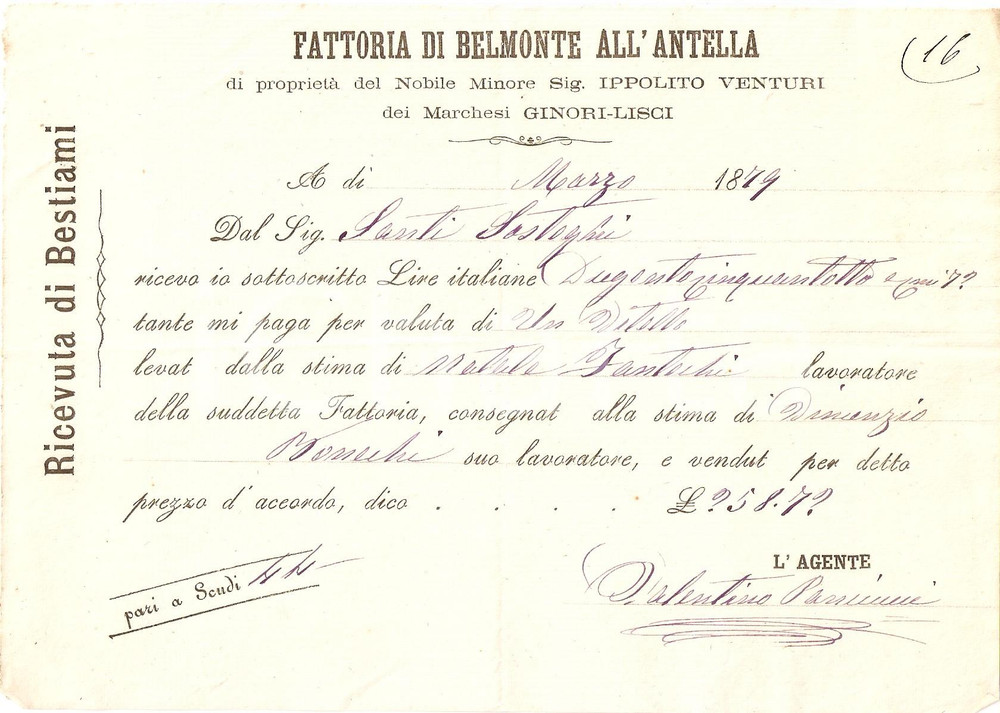 FATTORIA DI BELMONTE ALL'ANTELLA
16
di proprietà del Nobile Minore Sig. IPPOLITO VENTURI
dei Marchesi GINORI-LISCI
Ricevuta di Bestiami
A di Marzo 1879
Dal Sig. Santi Sosteghi
ricevo io sottoscritto Lire italiane Dugentocinquantotto e 72
tante mi paga per valuta di Un Vitello
levat dalla stima di Natale Fantechi lavoratore
della suddetta Fattoria, consegnat alla stima di
suo lavoratore, e vendut per detto
prezzo d'accordo, dico . . . . £ 258.72
pari a Scudi 44
L'AGENTE
Valentino